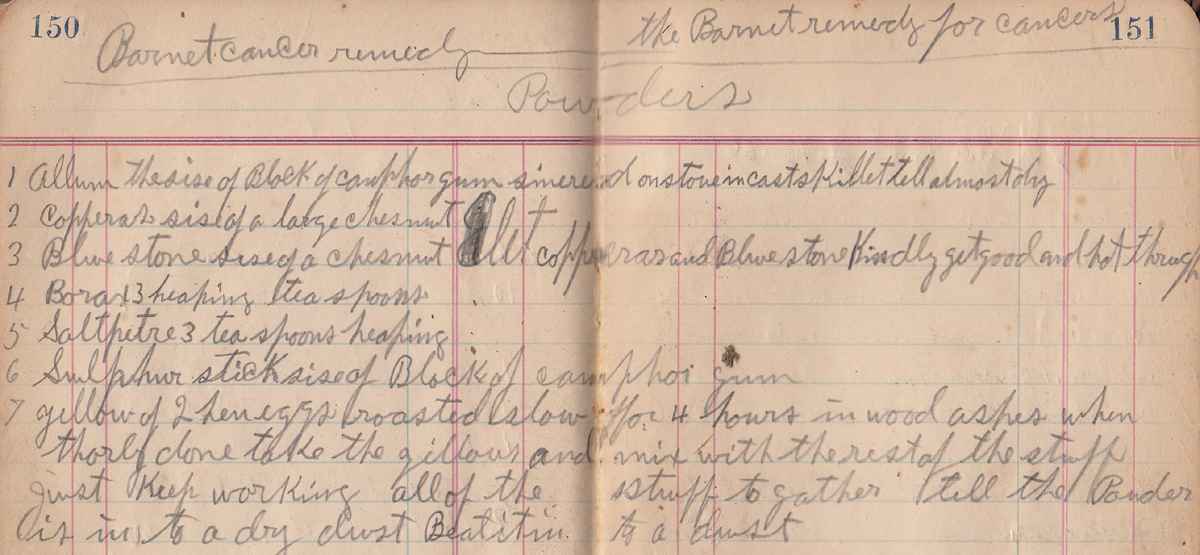 150 151
Barnet cancer remedy the Barnet remedy for cancers
Powders
1 Allum the sise of Block of camphor gum simered on stove in cast skillet tell almost dry
2 Copperas sise of a large chesnut
3 Blue stone sise of a chesnut let copperas and Blue stone Kindly get good and hot through
4 Borax 3 heaping tea spoons
5 Saltpetre 3 tea spoons heaping
6 Sulphur stick sise of Block of camphor gum
7 yellow of 2 hen eggs roasted slow for 4 hours in wood ashes when
thorly done take the yillows and mix with the rest of the stuff
just Keep working all of the sstuff to gather tell the Pouder
is in to a dry dust Beat it in to a dust